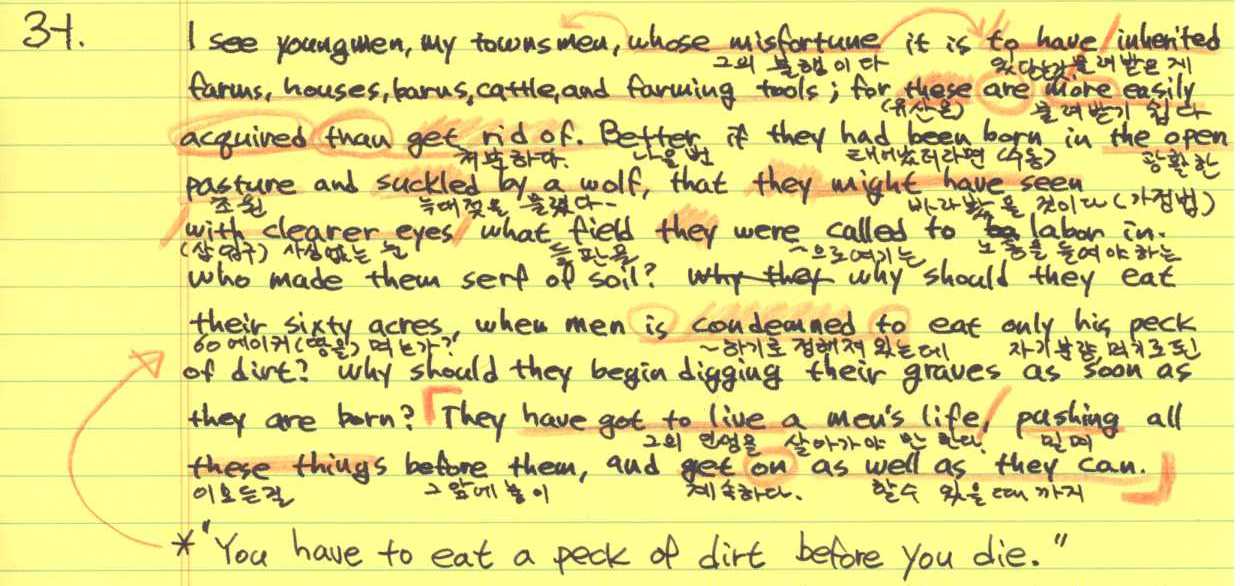 34. I see youngmen, my townsmen, whose misfortune it is to have inherited
그의 불행이다 물려받은게
farms, houses, barns, cattle, and farming tools; for these are more easily
(유산은) 물려받기 쉽다
acquired than get rid of. Better if they had been born in the open
처분하다. 나을번 태어났더라면 (수동) 광활한
pasture and suckled by a wolf, that they might have seen
초원 늑대젖을 물렸다~ 바라봤을 것이다 (가정법)
with clearer eyes what field they were called to labor in.
(삽입구) 사심없는 눈 들판을 ~으로여기는 노동을 들여야하는
who made them serf of soil? why they why should they eat
their sixty acres, when men is condemned to eat only his peck
60에이커(땅을) 먹는가? ~하기로 정해져 있는데 자기분량 먹기로된
of dirt? why should they begin digging their graves as soon as
they are born? They have got to live a men's life, pushing all
그의 인생을 살아가야 만 한다. 밀며
these things before them, and get on as well as they can.
이모든걸 그앞에 놓이 계속하다. 할수 있을때까지
* "You have to eat a peck of dirt before you die."